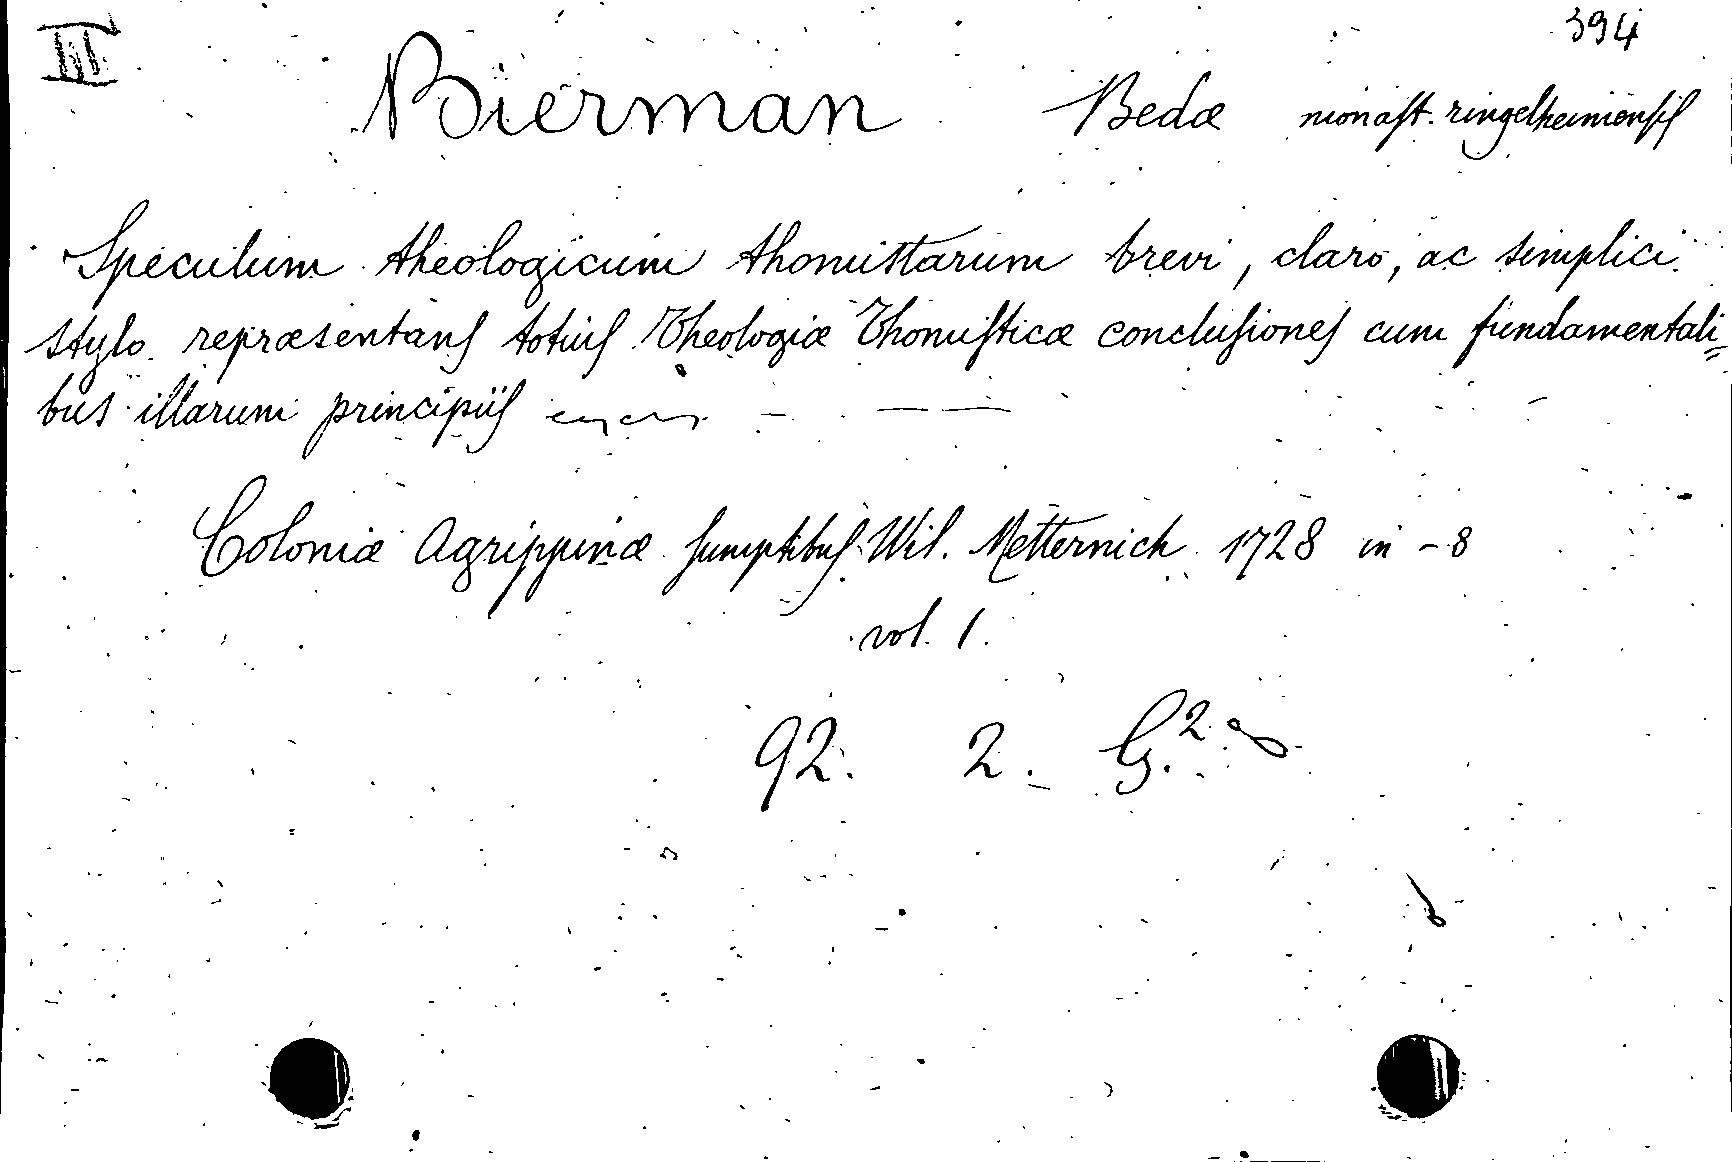 III 394
Bierman Bedæ monast. ringelheimensis
Speculum theologicum thomistarum brevi, claro, ac simplici
stylo repræsentans totius Theologiæ Thomisticæ conclusiones cum fundamentali=
bus illarum principiis
Coloniæ Agrippinæ sumptibus Wil. Metternich 1728 in-8
vol. 1.
92. 2. G.2